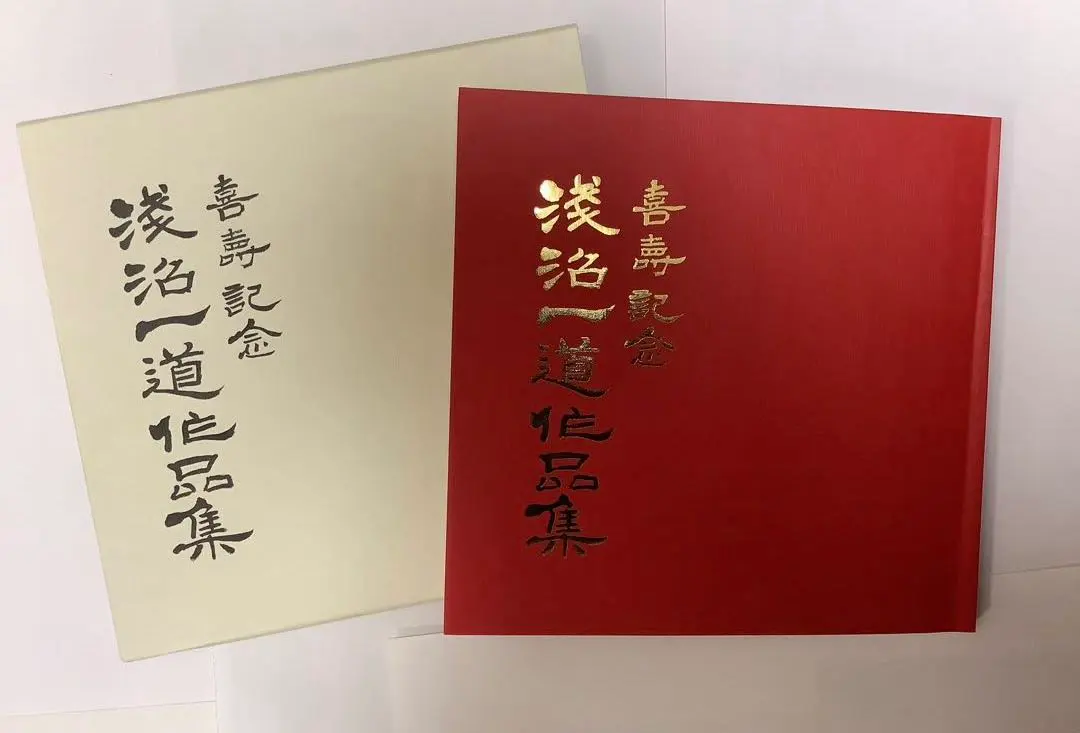 喜壽記念
淺沼一道作品集
喜壽記念
淺沼一道作品集